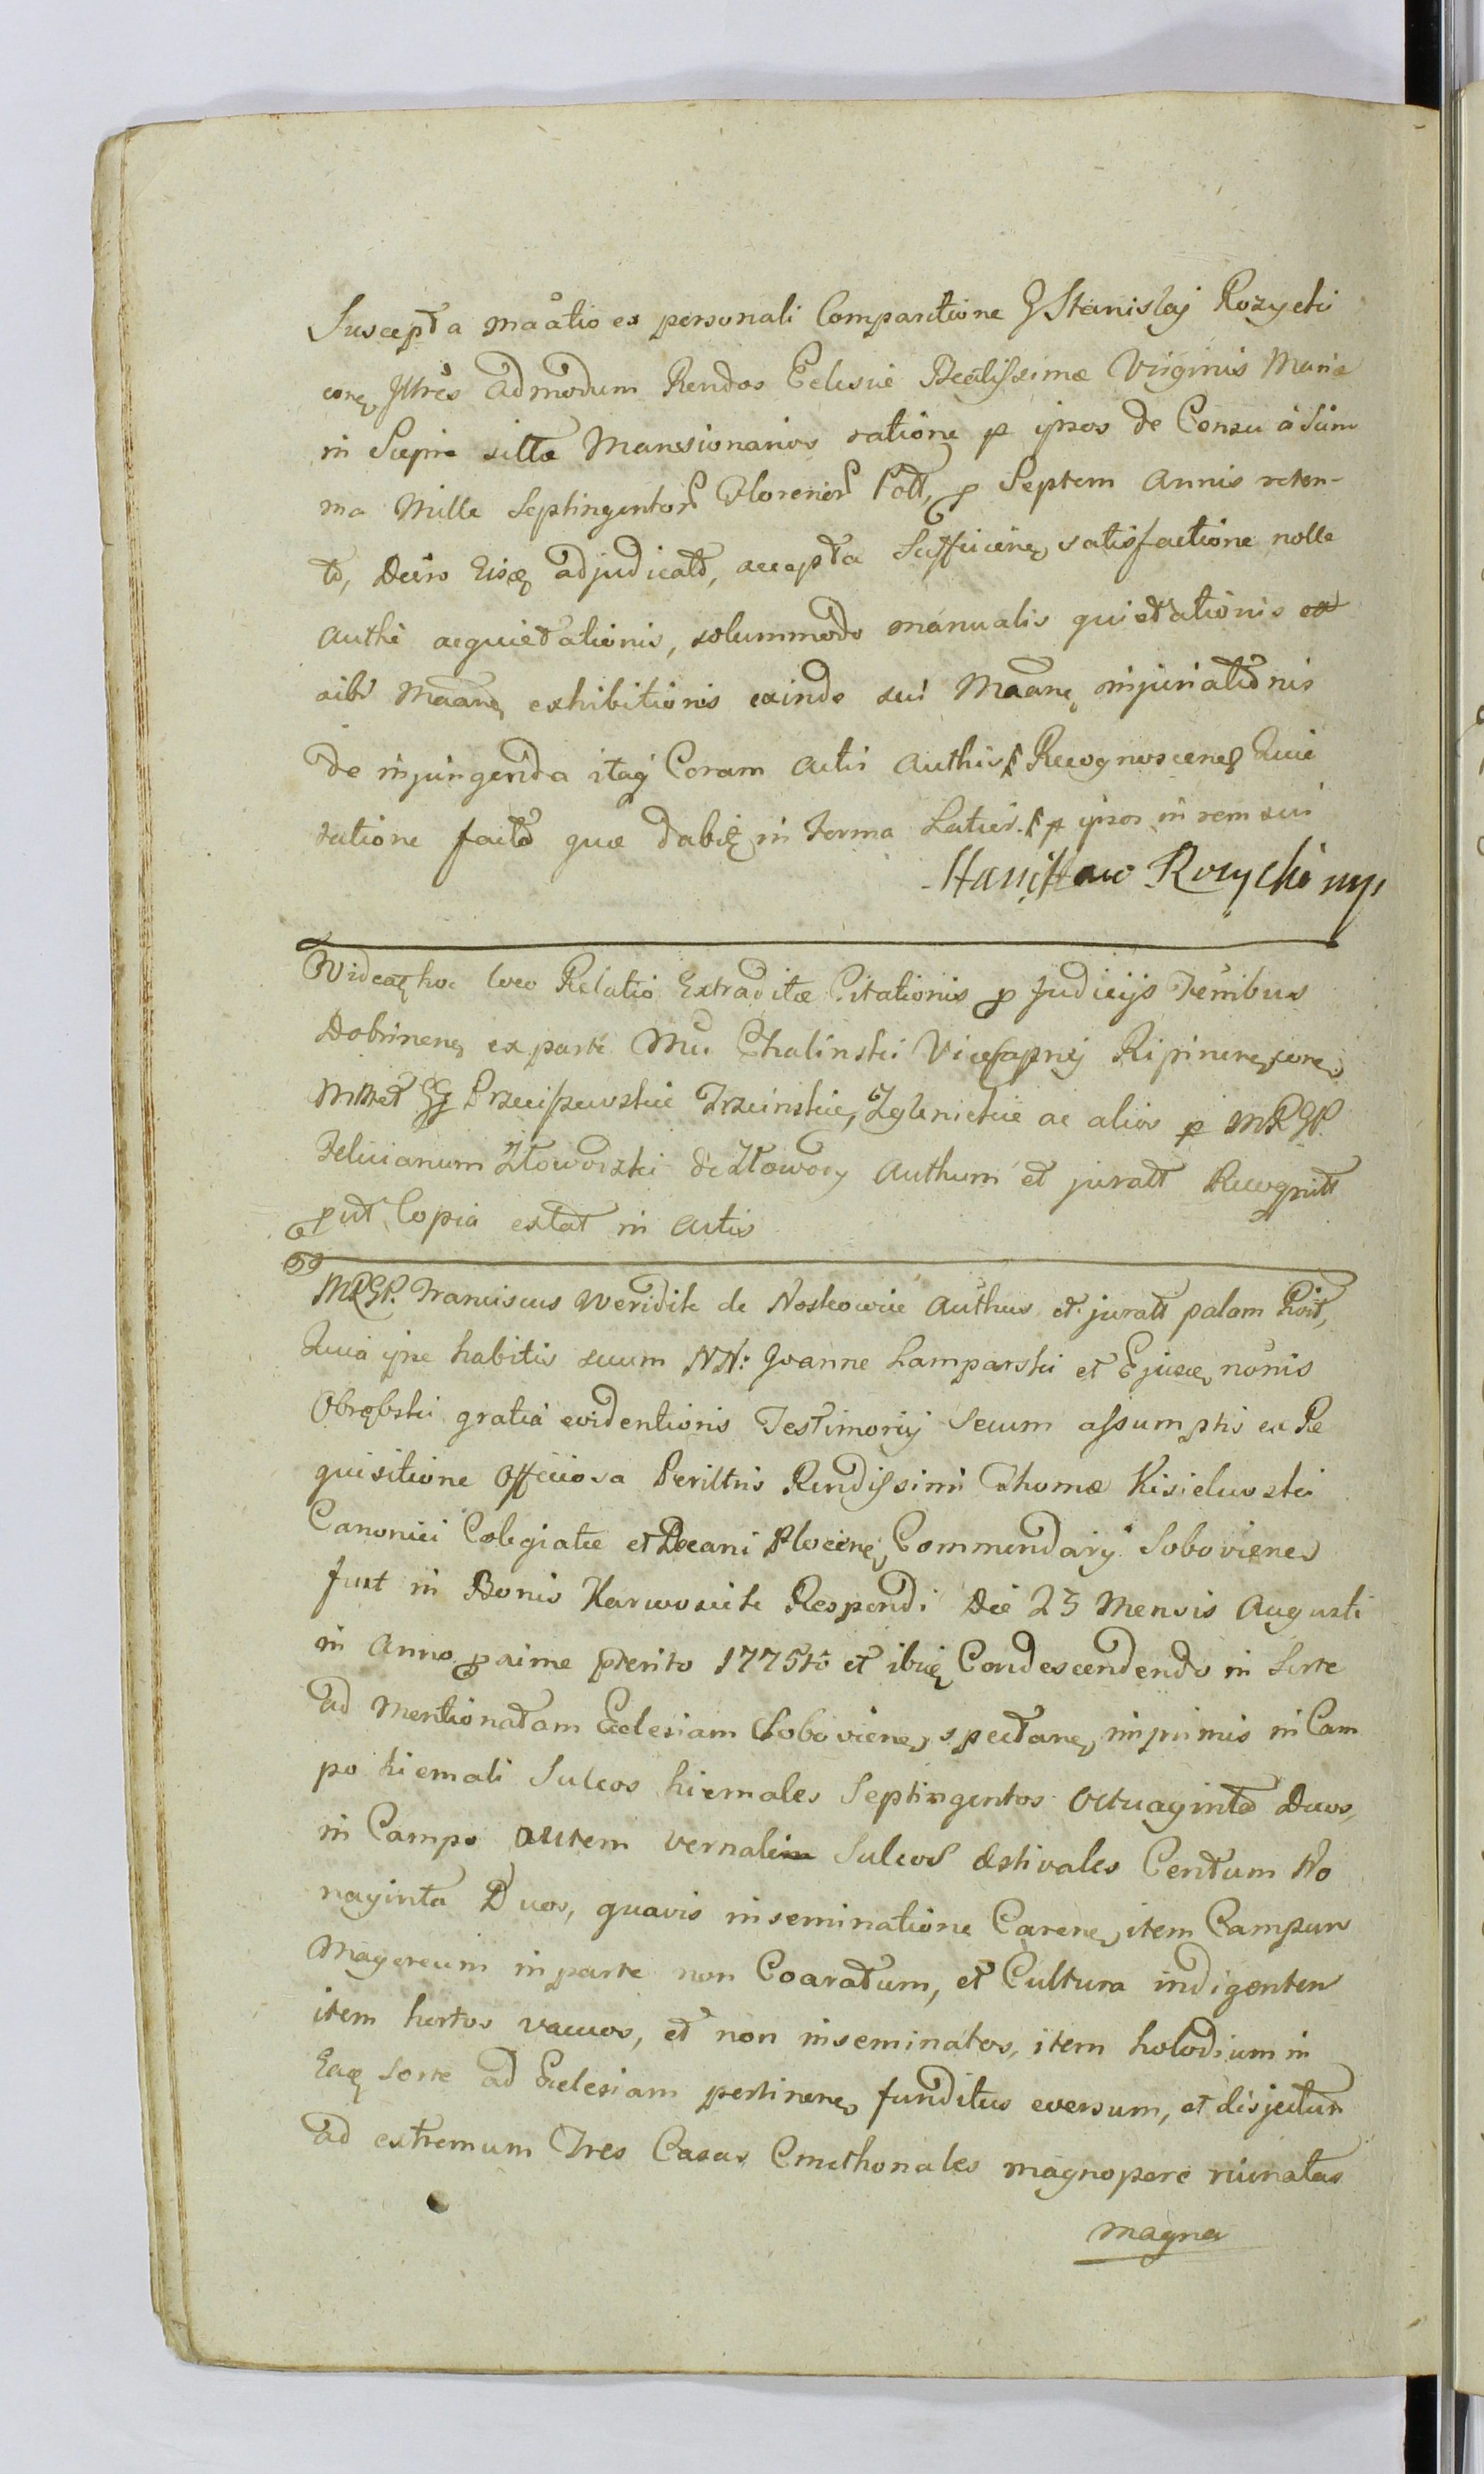 Suscepta maãtio ex personali Comparitione G Stanislaj Rozycki
conẹ Jllrẽs admodum Rendos Eclesiæ Beatissimæ Virginis Mariæ
in Scepie sittæ Mansionarios ratione p ipsos de Consu à Sum
ma Mille Septingentor Florenor Poll, p Septem Annis reten-
ta, Decro Eisdẹ adjudicata, accepta Sufficienẹ satisfactione nolle
Authẽ acquietationis, solummodo manualis quietationis
sibi Maãnẹ exhibitionis exinde sui Maãnẹ injuriationis
de injungenda itaq Coram actis Authis Recognoscenẹ Quie
tatione facta quæ dabiẹ in Forma Latiori p ipsos in rem sui
Stanisław Rozycki mp
Videaẹ hoc loco Relatio Extraditæ Citationis p Judicijs Trribus
Dobrinenẹ ex parte Mci Chalinski Vicecapnej Ripinenẹ conẹ
MMet GG Przeciszewskie Trzcinskie, Zglenickie ac alios p MRGP.
Felicianum Złowodzki de Złowody Authum et juratt Recognitt
put Copia extat in actis
MRGP. Franciscus Weridik de Noskowice Authus et juratt palam Roit,
Quia ipse habitis secum NN: Joanne Lamparski et Ejusdẹ nõnis
Obrębski gratia evidentioris Testimonij Secum assumptis ex Re
quisitione Officiosa Perilltris Rendissimi Thomæ Kisielewski
Canonici Colegiatæ et Decani Plocenẹ Commendarij Sobovienẹ
fuit in Bonis Karwosieki Respendi Die 23 Mensis Augusti
in Anno pxime pterito 1775tô et ibiẹ Condescendendo in Sorte
ad mentionatam Eclesiam Sobovienẹ spectanẹ, inprimis in Cam
po hiemali Sulcos hiemales Septingentos Octuaginta Duos,
in Campo autem vernali Sulcos æstivales Centum No
naginta Duos, quavis inseminatione Carenẹ, item Campum
Magerecum in parte non Coaratum, et Cultura indigentem
item hortos vacuos, et non inseminatos, item holodium in
Eadẹ Sorte ad Eclesiam pertinenẹ funditus eversum, et disjectum
ad extremum Tres Casas Cmethonales magnopere ruinatas
magna